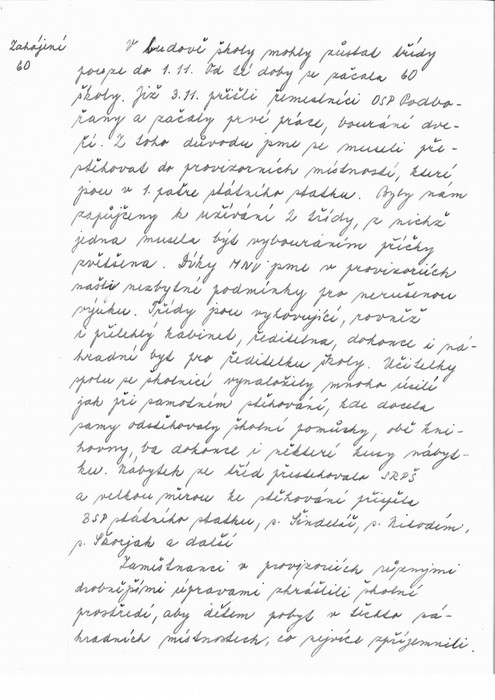 Zahájení
GO
V budově školy mohly zůstat třídy
pouze do 1.11. Od té doby se začala GO
školy. Již 3.11. přišli řemeslníci OSP Podbo-
řany a začaly prvé práce, bourání dve-
ří. Z toho důvodu jsme se museli pře-
stěhovat do provizorních místností, které
jsou v 1. patře státního statku. Byly nám
zapůjčeny k užívání 2 třídy, z nichž
jedna musela být vybouráním příčky
zvětšena. Díky MNV jsme v provizoriích
našli nezbytné podmínky pro nerušenou
výuku. Třídy jsou vyhovující, rovněž
i přilehlý kabinet, ředitelna, dokonce i ná-
hradní byt pro ředitelku školy. Učitelky
spolu se školnicí vynaložily mnoho úsilí
jak při samotném stěhování, kde docela
samy odstěhovaly školní pomůcky, obě kni-
hovny, ba dokonce i některé kusy nábyt-
ku. Nábytek ze tříd přestěhovalo SRPŠ
a velkou měrou ke stěhování přispěla
BSP státního statku, s. Šindelíř, s. Nikodém,
s. Škorjak a další
Zaměstnanci v provizoriích různými
drobnějšími úpravami zkrášlili školní
prostředí, aby dětem pobyt v těchto ná-
hradních místnostech, co nejvíce zpříjemnili.